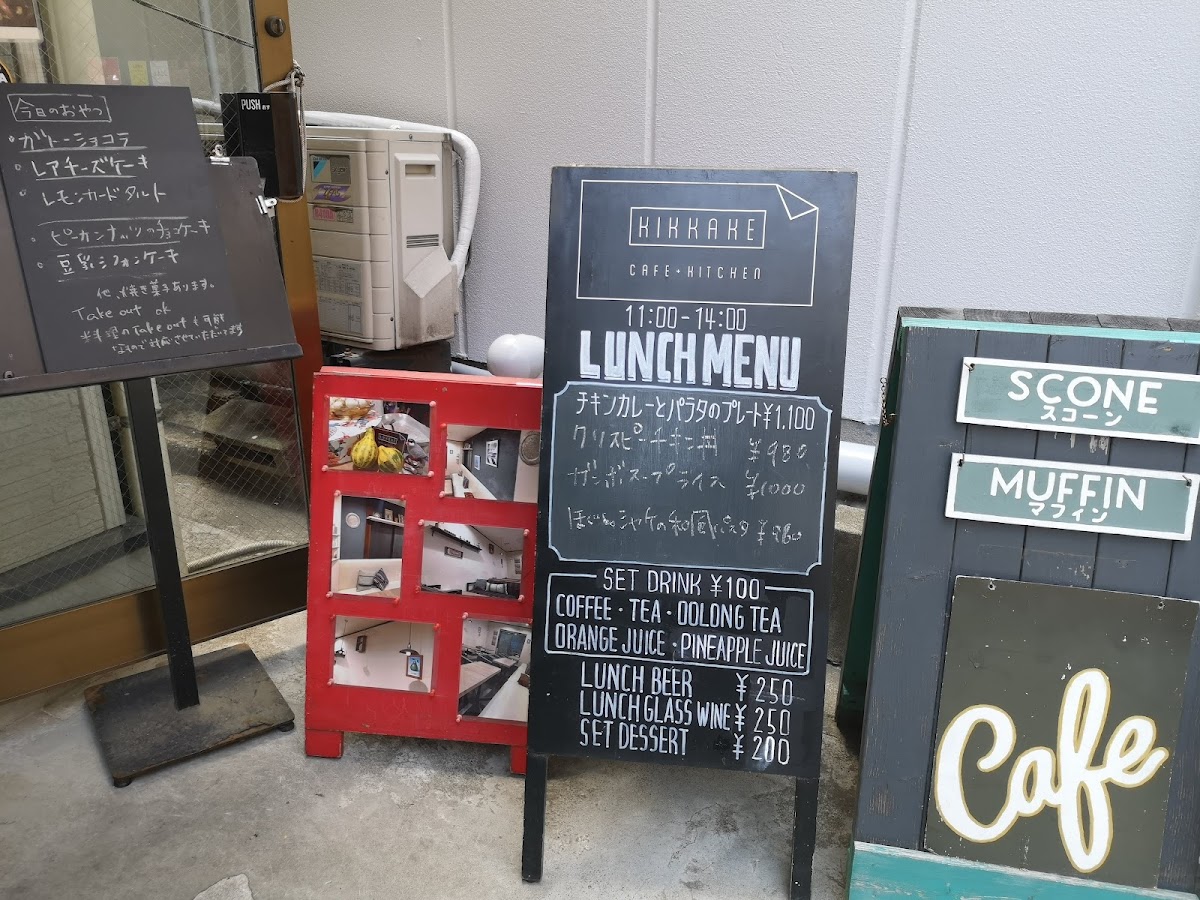 今日のおやつ
ガトーショコラ
レアチーズケーキ
レモンカードタルト
ピーカンナッツのチョコケーキ
豆乳シフォンケーキ
他、焼き菓子あります。
Take out ok
※料理のTake outも可能
なので対応させていただいてます
PUSH
KIKKAKE
CAFE+KITCHEN
11:00-14:00
LUNCH MENU
チキンカレーとパラタのプレート¥1.100
クリスピーチキン丼 ¥980
ザンボスープライス ¥1000
シャケの和風パスタ ¥960
SET DRINK ¥100
COFFEE・TEA・OOLONG TEA
ORANGE JUICE・PINEAPPLE JUICE
LUNCH BEER ¥250
LUNCH GLASS WINE ¥250
SET DESSERT ¥200
SCONE
スコーン
MUFFIN
マフィン
Cafe